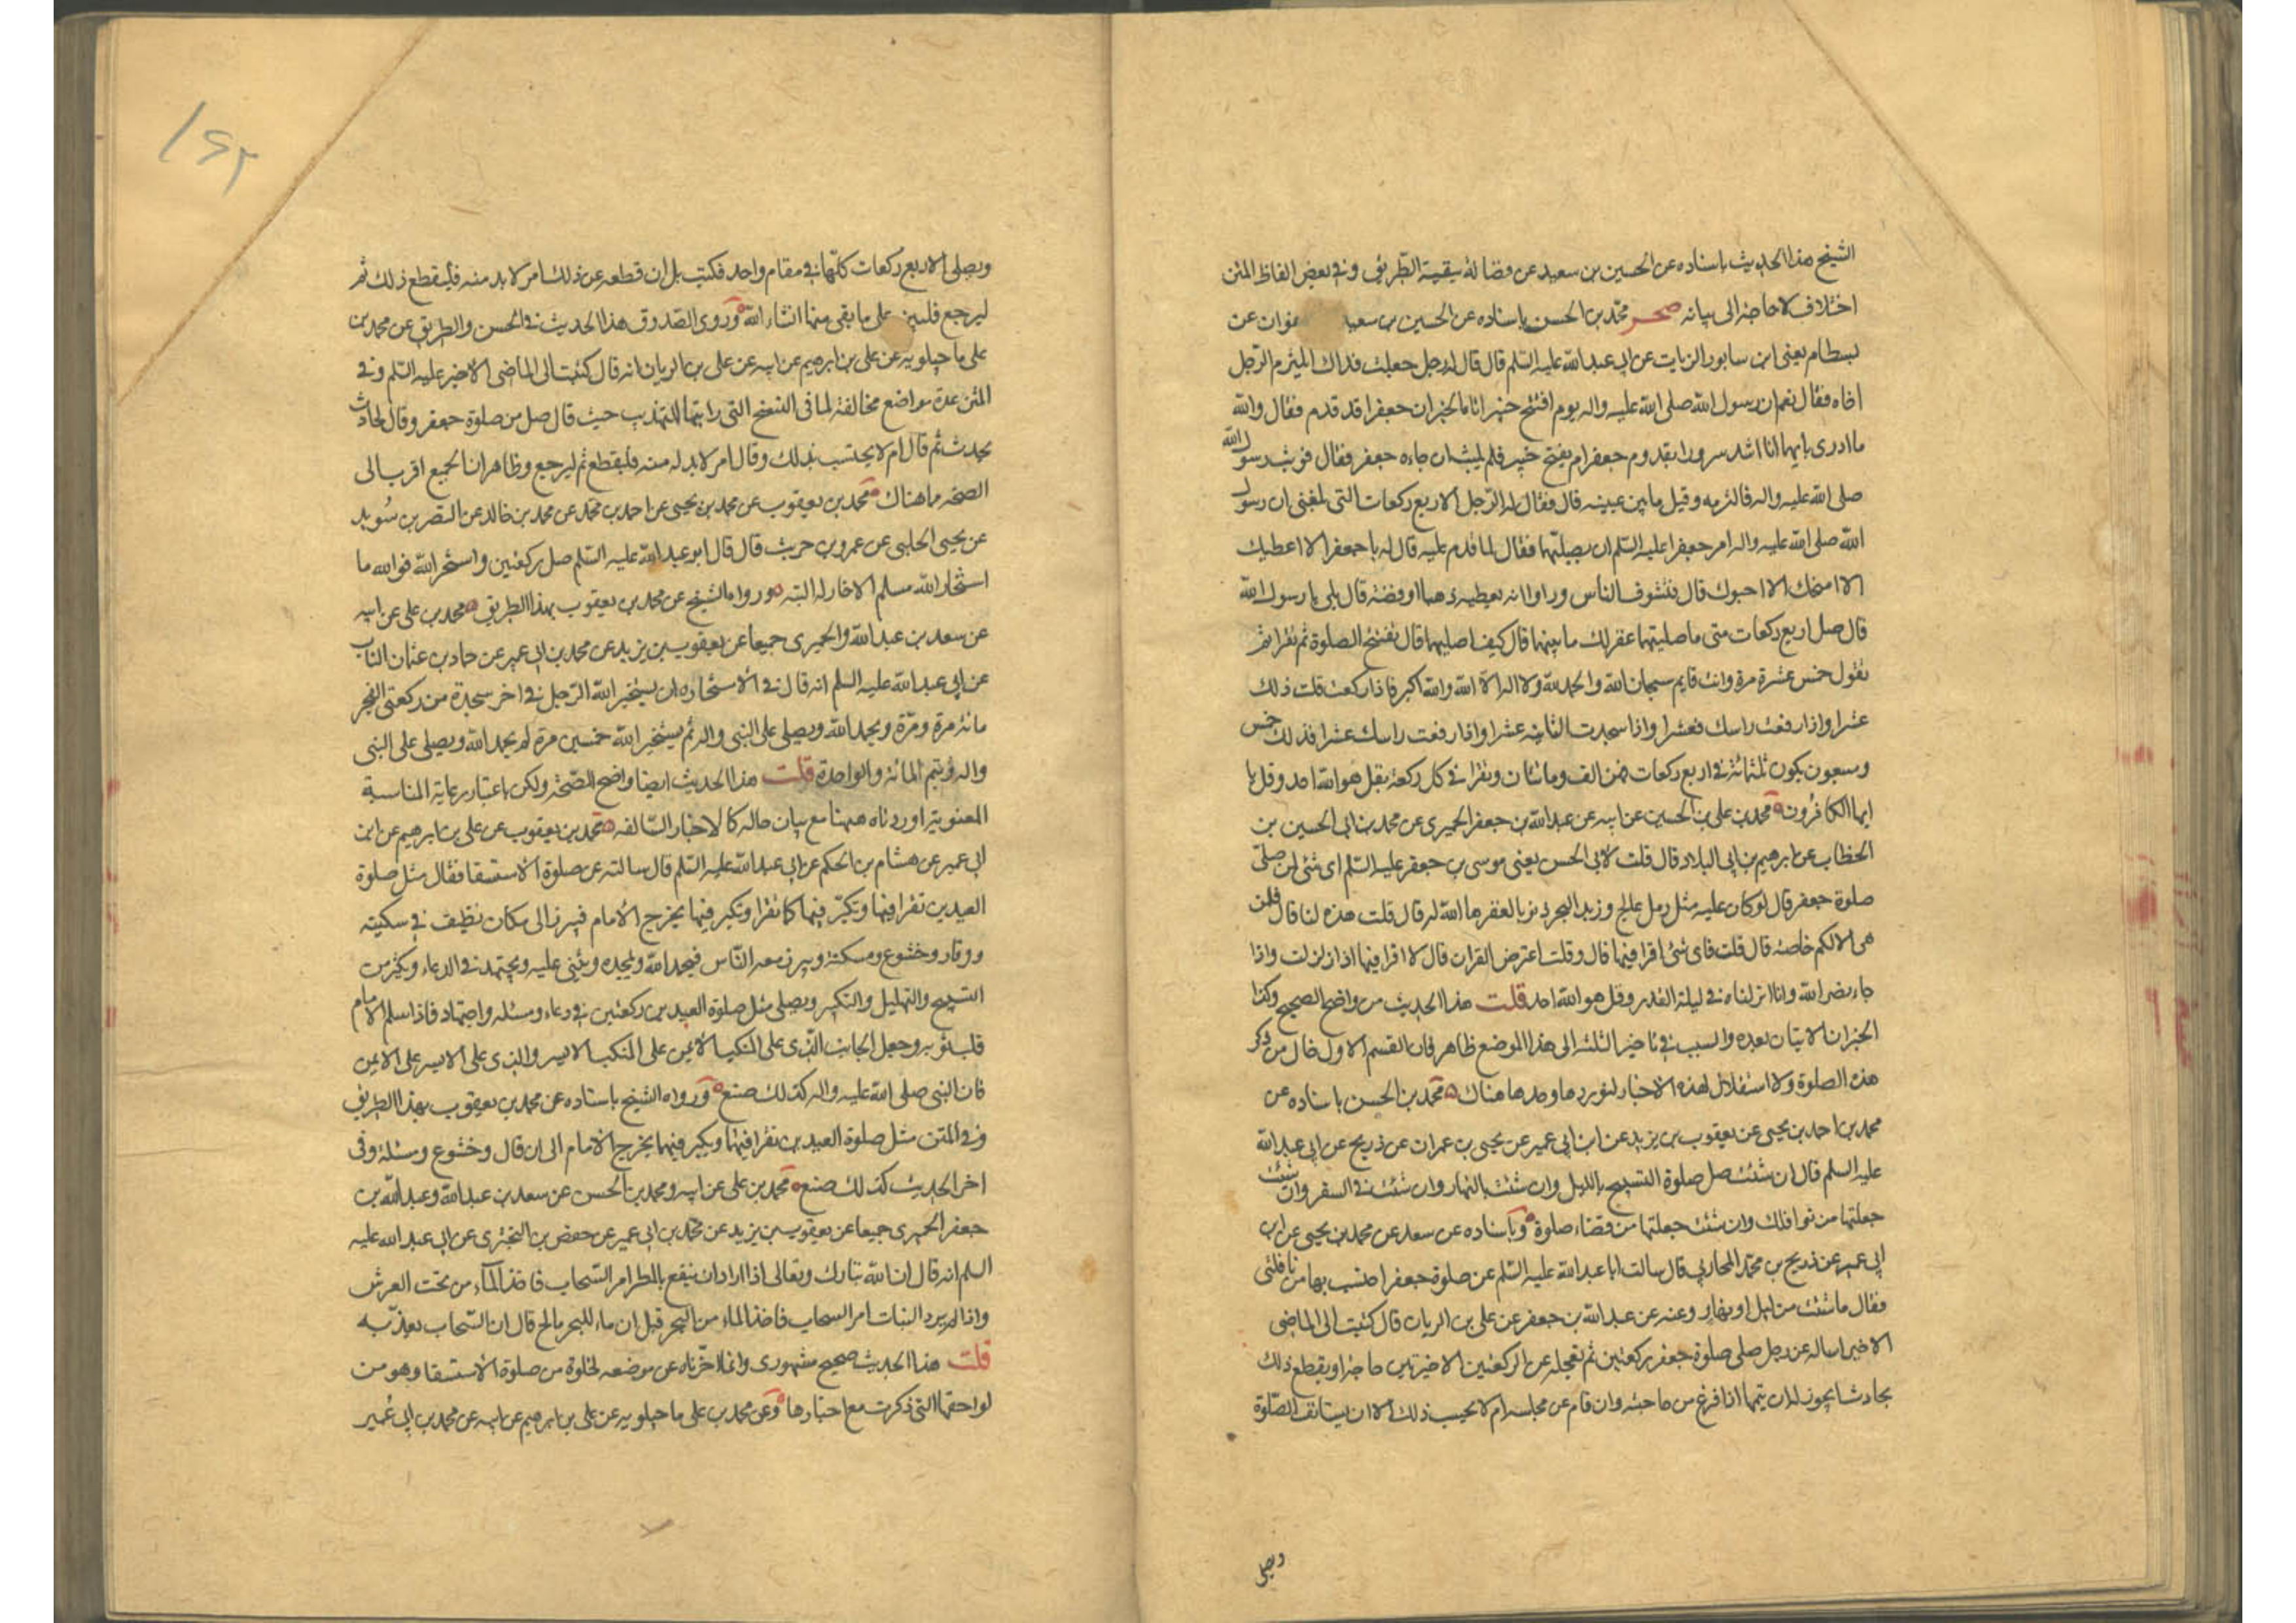 الشيخ هذا الحديث باسناده عن الحسين بن سعيد عن فضالة ببقية الطريق وفي بعض الفاظ المتن
اختلاف لا حاجة الى بيانه صحر محمد بن الحسن باسناده عن الحسين بن سعيد صفوان عن
بسطام يعني ابن سابور الزيات عن ابي عبد الله عليه السلم قال قال له رجل جعلت فداك ايلتزم الرجل
اخاه فقال نعم ان رسول الله صلى الله عليه واله يوم افتتح خيبر اتاه الخبر ان جعفرا قد قدم فقال والله
ما ادرى بايهما انا اشد سرورا بقدوم جعفر ام بفتح خيبر فلم يلبث ان جاءه جعفر فقال فوثب رسول الله
صلى الله عليه واله فالتزمه وقبل ما بين عينيه قال فقال له الرجل الاربع ركعات التي بلغني ان رسول
الله صلى الله عليه واله امر جعفرا عليه السلم ان يصليها فقال لما قدم عليه قال له يا جعفر الا اعطيك
الا امنحك الا احبوك قال فتشوف الناس وراوا انه يعطيه ذهبا او فضة قال بلى يا رسول الله
قال صل اربع ركعات متى ما صليتهن غفر لك ما بينهما قال كيف اصليها قال تفتتح الصلوة ثم تقرا ثم
تقول خمس عشرة مرة وانت قايم سبحان الله والحمد لله ولا اله الا الله والله اكبر فاذا ركعت قلت ذلك
عشرا واذا رفعت راسك فعشرا واذا سجدت الثانية عشرا واذا رفعت راسك عشرا فذلك خمس
وسبعون يكون ثلثمائة في اربع ركعات فهن الف ومائتان وتقرا في كل ركعة بقل هو الله احد وقل يا
ايها الكافرون محمد بن علي بن الحسين عن ابيه عن عبد الله بن جعفر الحميري عن محمد بن ابي الحسين بن
الخطاب عن ابرهيم بن ابي البلاد قال قلت لابي الحسن يعني موسى بن جعفر عليه السلم اى شئ لمن صلى
صلوة جعفر قال لو كان عليه مثل رمل عالج وزبد البحر ذنوبا لغفرها الله له قال قلت هذه لنا قال فلمن
هى الا لكم خاصة قال قلت فاى شئ اقرا فيها قال وقلت اعترض القران قال لا اقرا فيها اذا زلزلت واذا
جاء نصر الله وانا انزلناه في ليلة القدر وقل هو الله احد قلت هذا الحديث من واضح الصحيح وكذا
الخبران الاتيان بعده والسبب في تاخير الثلثة الى هذا الموضع ظاهر فان القسم الاول خال من ذكر
هذه الصلوة ولا استقلال لهذه الاخبار لنوردها وحدها هناك محمد بن الحسن باسناده عن
محمد بن احمد بن يحيى عن يعقوب بن يزيد عن ابن ابي عمير عن يحيى بن عمران عن ذريح عن ابي عبد الله
عليه السلم قال ان شئت صل صلوة التسبيح بالليل وان شئت بالنهار وان شئت في السفر وان شئت
جعلتها من نوافلك وان شئت جعلتها من قضاء صلوة وباسناده عن سعد عن محمد بن يحيى عن ابن
ابي عمير عن ذريح بن محمد المحاربي قال سالت ابا عبد الله عليه السلم عن صلوة جعفر احتسب بها من نافلتى
فقال ما شئت من ليل او نهار وعنه عن عبد الله بن جعفر عن علي بن الريان قال كتبت الى الماضى
الاخير اساله عن رجل صلى صلوة جعفر ركعتين ثم تعجله عن الركعتين الاخيرتين حاجة او يقطع ذلك
بحادث ايجوز له ان يتمها اذا فرغ من حاجته وان قام عن مجلسه ام لا يحتسب ذلك الا ان يستانف الصلوة
ويصلي
ويصلى الاربع ركعات كلها في مقام واحد فكتب بل ان قطعه عن ذلك امر لا بد منه فليقطع ذلك ثم
ليرجع فليبن على ما بقى منها انشاء الله وروى الصدوق هذا الحديث في الحسن والطريق عن محمد بن
على ماجيلويه عن على بن ابرهيم عن ابيه عن على بن الريان انه قال كتبت الى الماضى الاخير عليه السلم وفي
المتن عدة مواضع مخالفة لما في النسخ التى رايتها للتهذيب حيث قال صل من صلوة جعفر وقال لحادث
يحدث ثم قال ام لا يحتسب بذلك وقال امر لا بد له منه فليقطع ثم ليرجع وظاهر ان الجميع اقرب الى
الصحة مما هناك محمد بن يعقوب عن محمد بن يحيى عن احمد بن محمد عن محمد بن خالد عن النضر بن سويد
عن يحيى الحلبى عن عمرو بن حريث قال قال ابو عبد الله عليه السلم صل ركعتين واستخر الله فوالله ما
استخار الله مسلم الا خار له البتة ورواه الشيخ عن محمد بن يعقوب بهذا الطريق محمد بن على عن ابيه
عن سعد بن عبد الله والحميرى جميعا عن يعقوب بن يزيد عن محمد بن ابى عمير عن حماد بن عثمان الناب
عن ابي عبد الله عليه السلم انه قال في الاستخاره ان يستخير الله الرجل في اخر سجدة من ركعتى الفجر
مائة مرة ومرة ويحمد الله ويصلى على النبى واله ثم يستخير الله خمسين مرة ثم يحمد الله ويصلى على النبى
واله ويتم المائة والواحدة قلت هذا الحديث ايضا واضح الصحة ولكن باعتبار رعاية المناسبة
المعنوية اوردناه ههنا مع بيان حاله كالاخبار السالفه محمد بن يعقوب عن على بن ابرهيم عن ابن
ابى عمير عن هشام بن الحكم عن ابى عبد الله عليه السلم قال سالته عن صلوة الاستسقا فقال مثل صلوة
العيدين تقرا فيها وتكبر فيها كما تقرا وتكبر فيها يخرج الامام فيبرز الى مكان نظيف في سكينه
ووقار وخشوع ومسكنة ويبرز معه الناس فيحمد الله ويمجده ويثنى عليه ويجتهد في الدعاء ويكثر من
التسبيح والتهليل والتكبير ويصلى مثل صلوة العيدين ركعتين في دعاء ومسئله واجتهاد فاذا سلم الامام
قلب ثوبه وجعل الجانب الذى على المنكب الايمن على المنكب الايسر والذى على الايسر على الايمن
فان النبى صلى الله عليه واله كذلك صنع ورواه الشيخ باسناده عن محمد بن يعقوب بهذا الطريق
وفي المتن مثل صلوة العيدين تقرا فيهما ويكبر فيهما يخرج الامام الى ان قال وخشوع ومسئلة وفى
اخر الحديث كذلك صنع محمد بن على عن ابيه ومحمد بن الحسن عن سعد بن عبد الله وعبد الله بن
جعفر الحميرى جميعا عن يعقوب بن يزيد عن محمد بن ابى عمير عن حفص بن البخترى عن ابى عبد الله عليه
السلم انه قال ان الله تبارك وتعالى اذا اراد ان ينفع بالمطر امر السحاب فاخذ الماء من تحت العرش
واذا لم يرد النبات امر السحاب فاخذ الماء من البحر قيل ان ماء البحر مالح قال ان السحاب يعذبه
قلت هذا الحديث صحيح مشهورى وانما اخرناه عن موضعه لخلوه من صلوة الاستسقا وهو من
لواحقها التى ذكرت مع اخبارها وعن محمد بن على ماجيلويه عن على بن ابرهيم عن ابيه عن محمد بن ابى عمير